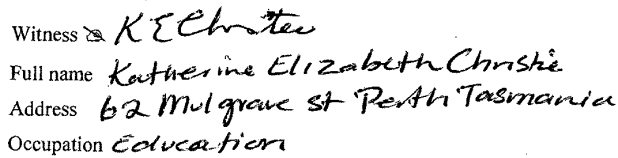 Witness K E Christie
Full name Katherine Elizabeth Christie
Address 62 Mulgrave st Perth Tasmania
Occupation Education